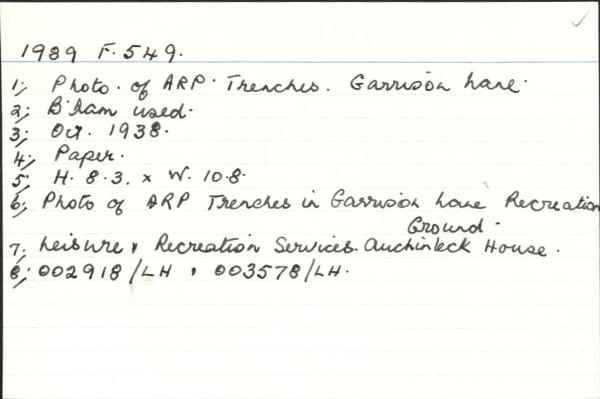 1989 F. 549.
1; Photo. of ARP. Trenches. Garrison Lane.
2; B'ham used.
3; Oct. 1938.
4; Paper.
5; H. 8.3. x W. 10.8
6; Photo of ARP Trenches in Garrison Lane Recreation
Ground.
7. Leisure & Recreation Services. Auchinleck House.
8; 002918/LH , 003578/LH.